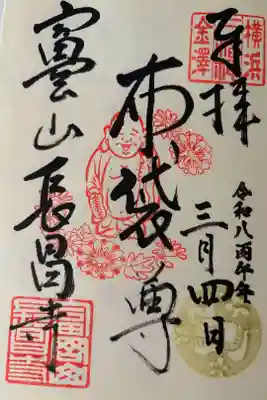 横浜
金澤
奉拝
令和八丙午年
三月四日
布袋尊
富岡山長昌寺